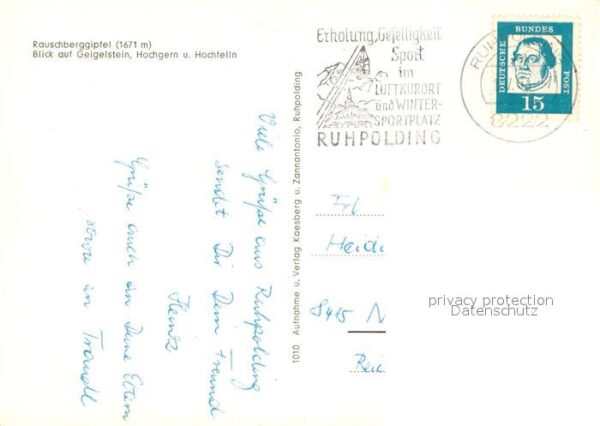 Rauschberggipfel (1671 m)
Blick auf Geigelstein, Hochgern u. Hochfelln
Viele Grüße aus Ruhpolding
sendet Dir Dein Freund
Heinz
Grüße auch an Deine Eltern
1010 Aufnahme u. Verlag Kaesberg u. Zannantonio, Ruhpolding
Erholung, Geselligkeit
Sport
im
LUFTKURORT
und WINTER-
SPORTPLATZ
RUHPOLDING
RUH
8222
DEUTSCHE BUNDES POST
15
Frl
Heidi
8415 N
privacy protection
Datenschutz